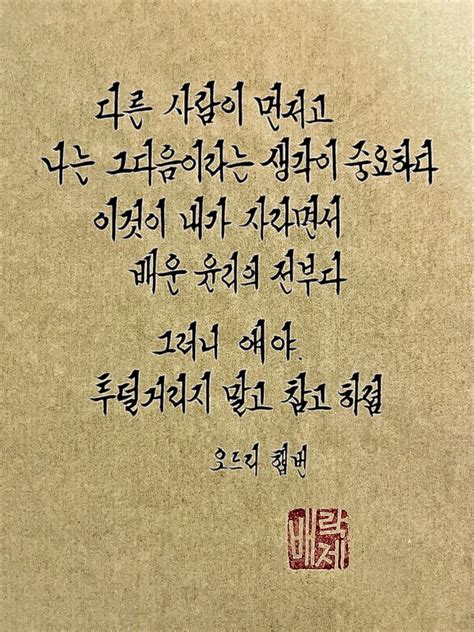 다른 사람이 먼저고
나는 그다음이라는 생각이 중요하다
이것이 내가 자라면서
배운 윤리의 전부다
그러니 얘야.
투덜거리지 말고 참고 하렴
오드리 햅번
배락제